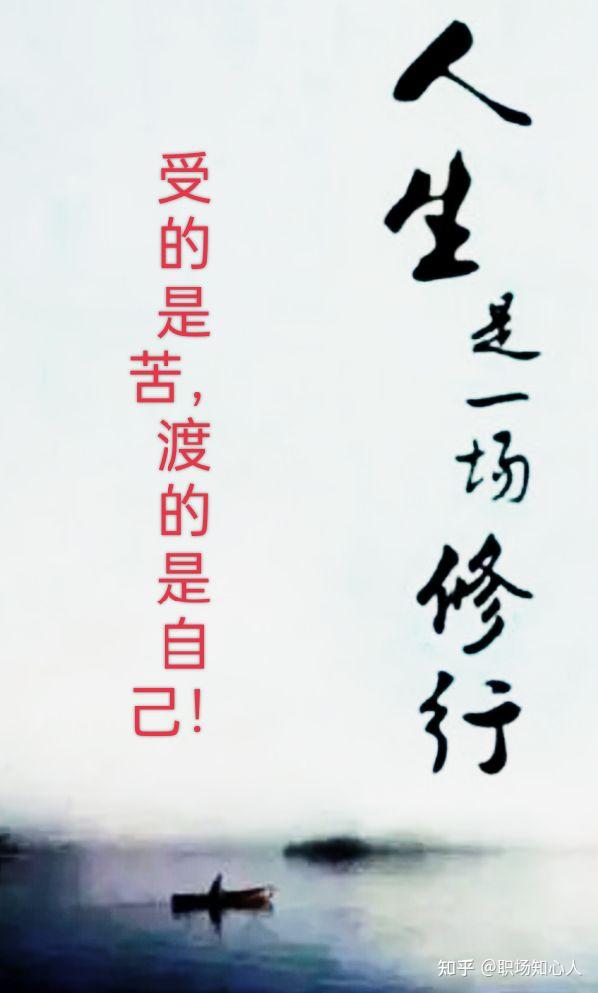 人生是一场修行
受的是苦,渡的是自己!
知乎 @职场知心人